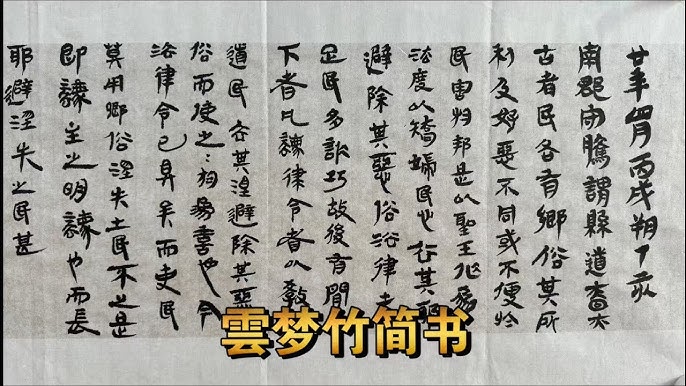 廿年四月丙戌朔丁亥
南郡守騰謂縣道嗇夫
古者民各有鄉俗其所
利及好惡不同或不便於
民害於邦是以聖王作為
法度以矯端民心去其邪
避除其惡俗法律未
足民多詐巧故後有間
下者凡灋律令者以教
道民去其淫避除其惡
俗而使之:於為善也今
法律令已具矣而吏民
莫用鄉俗淫失之民不止是
即灋主之明灋也而長
耶避淫失之民甚
雲梦竹简书